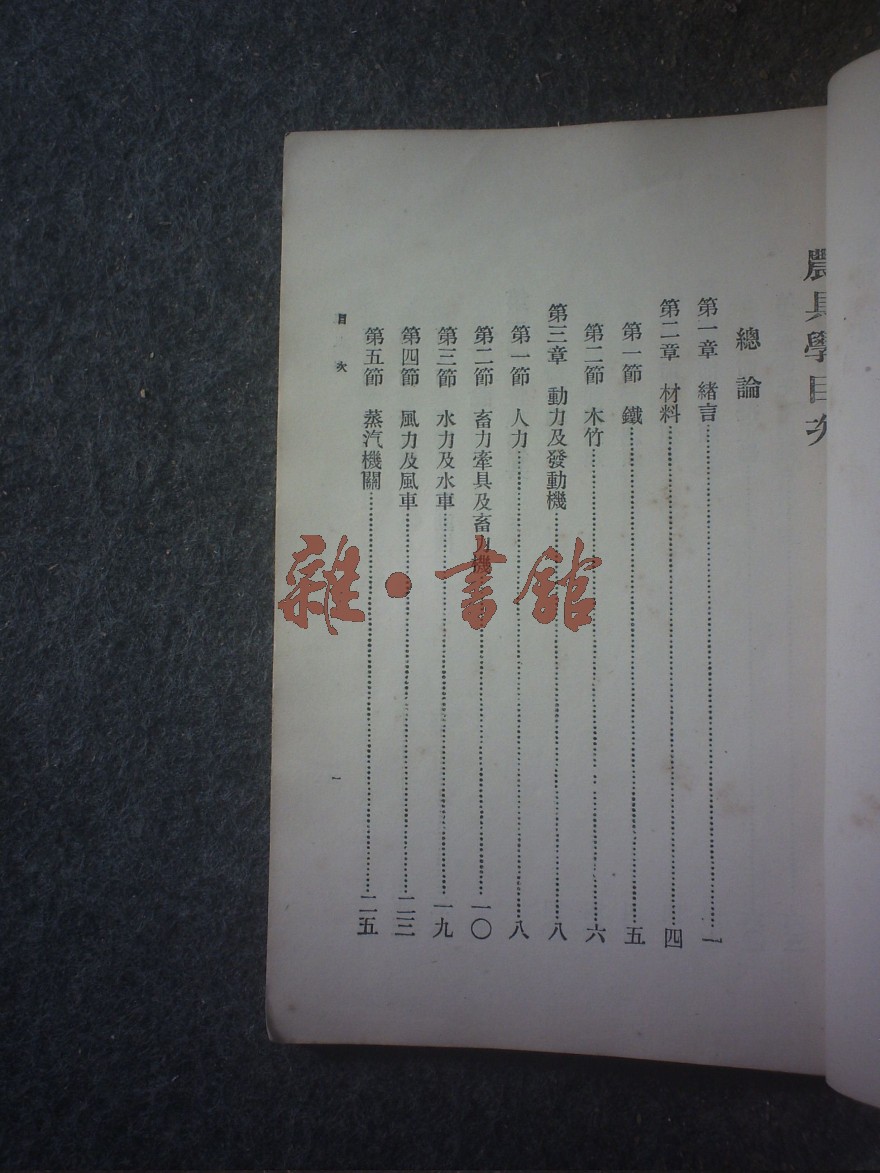 農具學目次
總論
第一章 緒言……一
第二章 材料……四
第一節 鐵……五
第二節 木竹……六
第三章 動力及發動機……八
第一節 人力……八
第二節 畜力牽具及畜力機……一〇
第三節 水力及水車……一九
第四節 風力及風車……二三
第五節 蒸汽機關……二五
目次
一
雜•書館